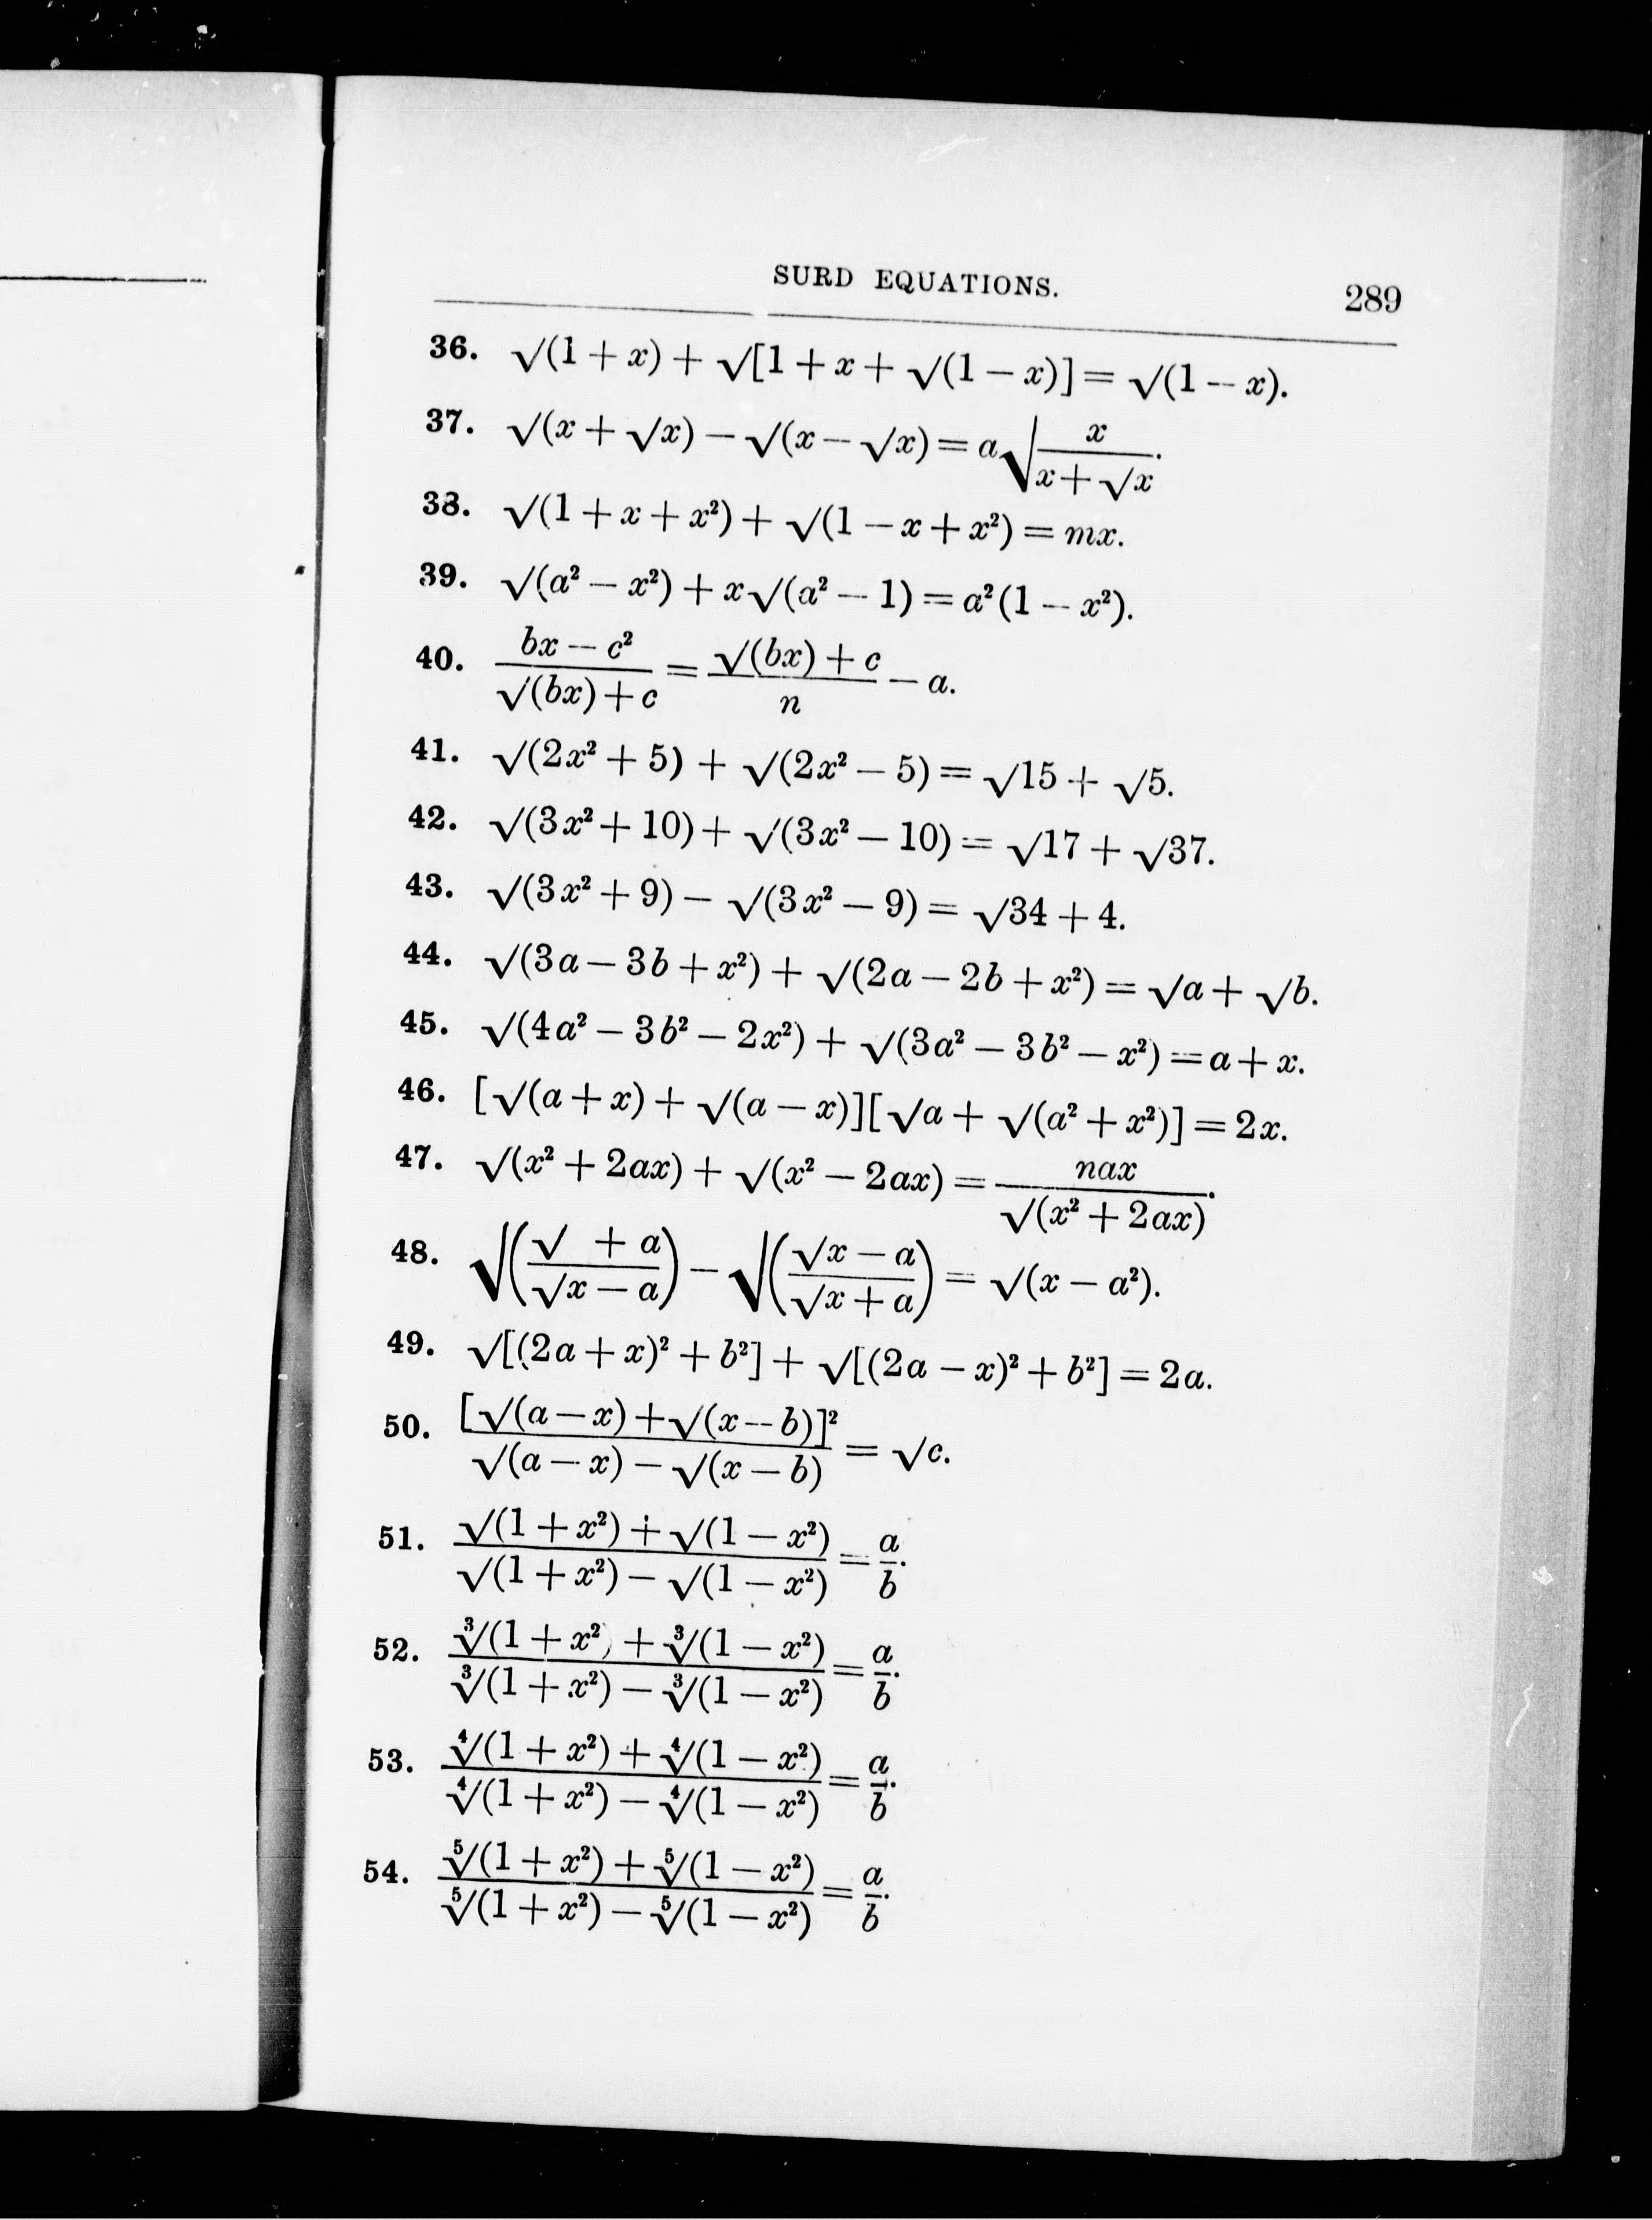 SURD EQUATIONS. 289
36. √(1 + x) + √[1 + x + √(1 − x)] = √(1 − x).
37. √(x + √x) − √(x − √x) = a√(x/(x + √x)).
38. √(1 + x + x²) + √(1 − x + x²) = mx.
39. √(a² − x²) + x√(a² − 1) = a²(1 − x²).
40. (bx − c²)/(√(bx) + c) = (√(bx) + c)/n − a.
41. √(2x² + 5) + √(2x² − 5) = √15 + √5.
42. √(3x² + 10) + √(3x² − 10) = √17 + √37.
43. √(3x² + 9) − √(3x² − 9) = √34 + 4.
44. √(3a − 3b + x²) + √(2a − 2b + x²) = √a + √b.
45. √(4a² − 3b² − 2x²) + √(3a² − 3b² − x²) = a + x.
46. [√(a + x) + √(a − x)][√a + √(a² + x²)] = 2x.
47. √(x² + 2ax) + √(x² − 2ax) = nax/√(x² + 2ax).
48. √((√ + a)/(√x − a)) − √((√x − a)/(√x + a)) = √(x − a²).
49. √[(2a + x)² + b²] + √[(2a − x)² + b²] = 2a.
50. [√(a − x) + √(x − b)]²/(√(a − x) − √(x − b)) = √c.
51. (√(1 + x²) + √(1 − x²))/(√(1 + x²) − √(1 − x²)) = a/b.
52. (∛(1 + x²) + ∛(1 − x²))/(∛(1 + x²) − ∛(1 − x²)) = a/b.
53. (∜(1 + x²) + ∜(1 − x²))/(∜(1 + x²) − ∜(1 − x²)) = a/b.
54. (⁵√(1 + x²) + ⁵√(1 − x²))/(⁵√(1 + x²) − ⁵√(1 − x²)) = a/b.